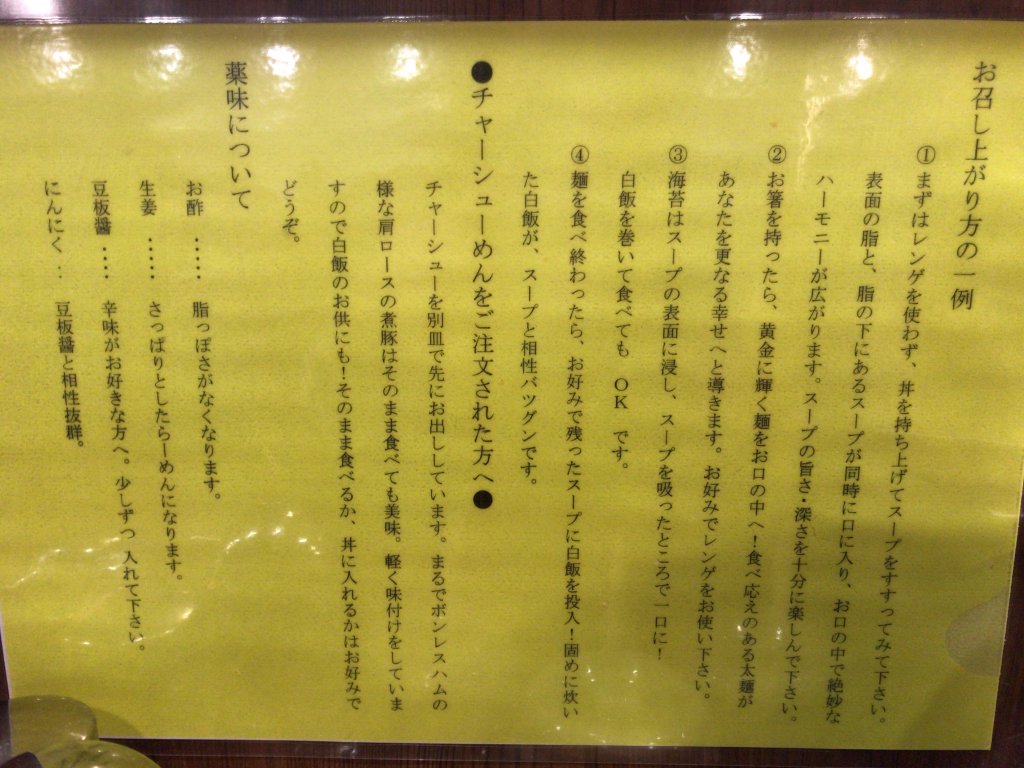 お召し上がり方の一例
①まずはレンゲを使わず、丼を持ち上げてスープをすすってみて下さい。
表面の脂と、脂の下にあるスープが同時に口に入り、お口の中で絶妙な
ハーモニーが広がります。スープの旨さ・深さを十分に楽しんで下さい。
②お箸を持ったら、黄金に輝く麺をお口の中へ！食べ応えのある太麺が
あなたを更なる幸せへと導きます。お好みでレンゲをお使い下さい。
③海苔はスープの表面に浸し、スープを吸ったところで一口に！
白飯を巻いて食べても OK です。
④麺を食べ終わったら、お好みで残ったスープに白飯を投入！固めに炊い
た白飯が、スープと相性バツグンです。
●チャーシューめんをご注文された方へ●
チャーシューを別皿で先にお出ししています。まるでボンレスハムの
様な肩ロースの煮豚はそのまま食べても美味。軽く味付けをしていま
すので白飯のお供にも！そのまま食べるか、丼に入れるかはお好みで
どうぞ。
薬味について
お酢 ‥‥‥ 脂っぽさがなくなります。
生姜 ‥‥‥ さっぱりとしたらーめんになります。
豆板醤‥‥ 辛味がお好きな方へ。少しずつ 入れて下さい。
にんにく‥ 豆板醤と相性抜群。